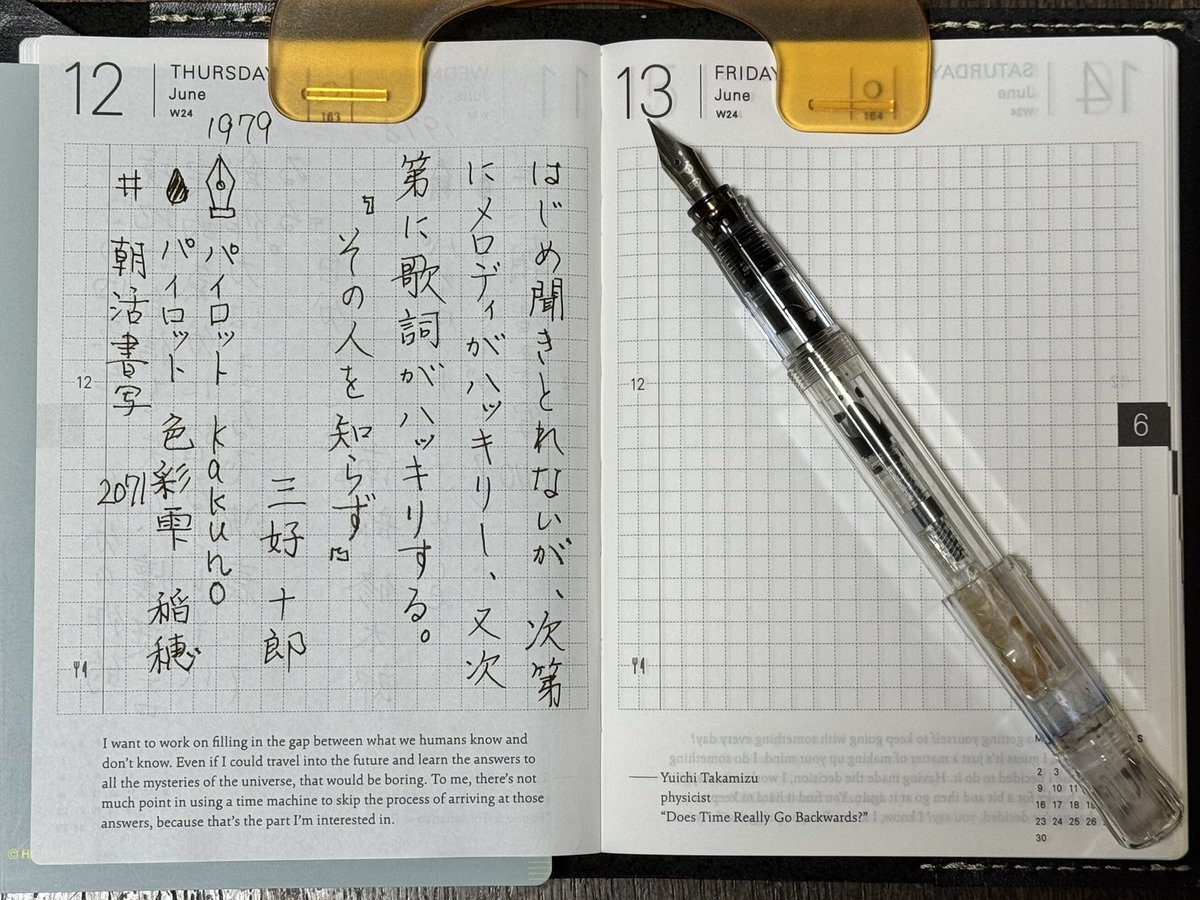 12
THURSDAY
June
W24
1979
はじめ聞きとれないが、次第
にメロディがハッキリし、又次
第に歌詞がハッキリする。
『その人を知らず』
三好十郎
パイロット kakuno
パイロット 色彩雫 稲穂
# 朝活書写 2071
12
I want to work on filling in the gap between what we humans know and
don't know. Even if I could travel into the future and learn the answers to
all the mysteries of the universe, that would be boring. To me, there's not
much point in using a time machine to skip the process of arriving at those
answers, because that's the part I'm interested in.
13
FRIDAY
June
W24
12
6
Yuichi Takamizu
physicist
"Does Time Really Go Backwards?"
M
S
2 3
9 10 11
16 17 18
23 24 25 26
30